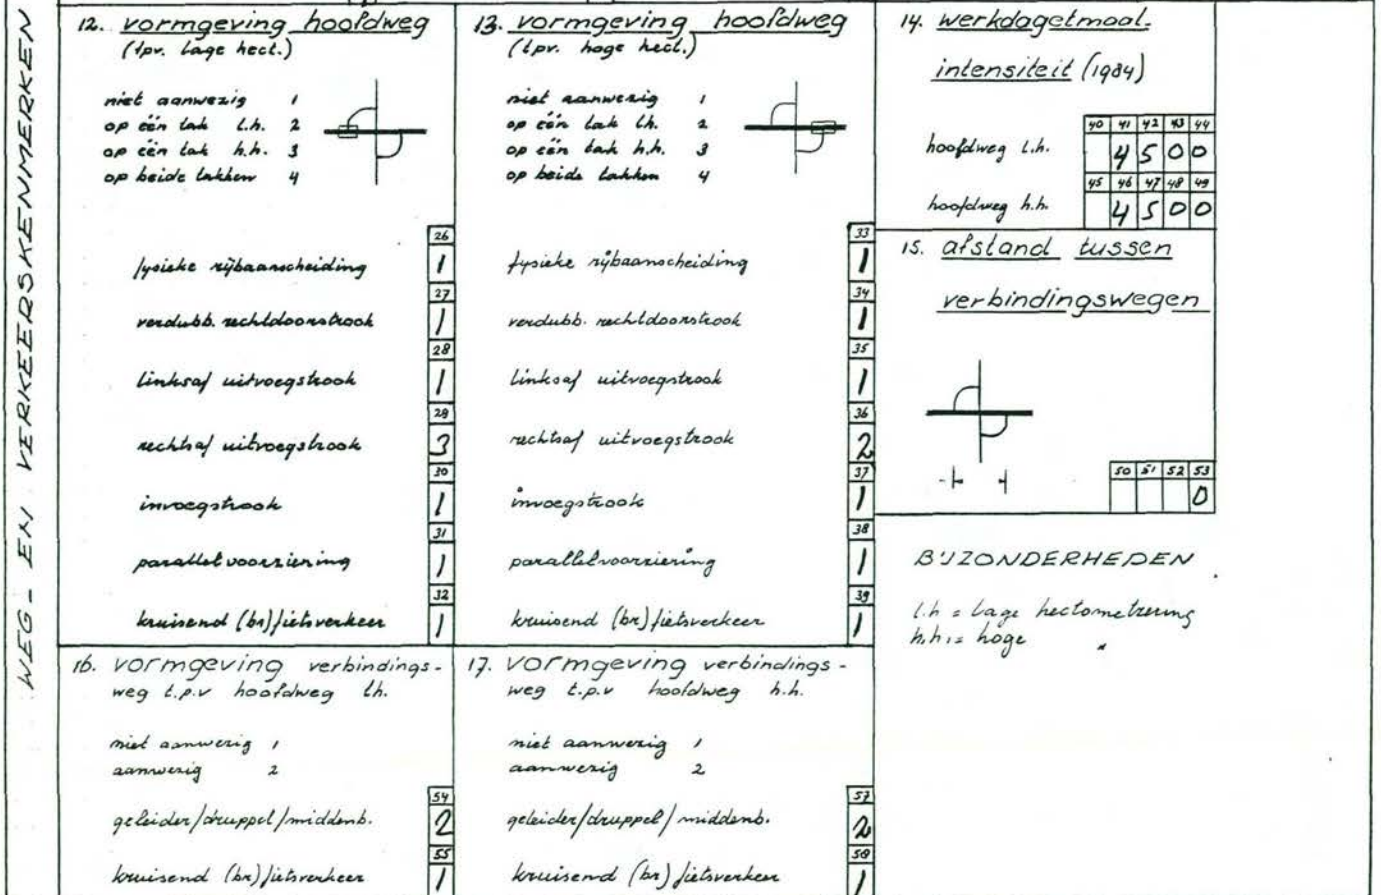 WEG- EN VERKEERSKENMERKEN
12. vormgeving hoofdweg
(tpv. lage hect.)
niet aanwezig 1
op één tak l.h. 2
op één tak h.h. 3
op beide takken 4
26
fysieke rijbaanscheiding 1
27
verdubb. rechtdoorstrook 1
28
linksaf uitvoegstrook 1
29
rechtsaf uitvoegstrook 3
30
invoegstrook 1
31
parallelvoorziening 1
32
kruisend (br)fietsverkeer 1
13. vormgeving hoofdweg
(tpv. hoge hect.)
niet aanwezig 1
op één tak lh. 2
op één tak h.h. 3
op beide takken 4
33
fysieke rijbaanscheiding 1
34
verdubb. rechtdoorstrook 1
35
linksaf uitvoegstrook 1
36
rechtsaf uitvoegstrook 2
37
invoegstrook 1
38
parallelvoorziening 1
39
kruisend (br)fietsverkeer 1
14. werkdagetmaal-
intensiteit (1984)
40 41 42 43 44
hoofdweg l.h. 4 5 0 0
45 46 47 48 49
hoofdweg h.h. 4 5 0 0
15. afstand tussen
verbindingswegen
50 51 52 53
0
BIJZONDERHEDEN
l.h = lage hectometrering
h.h. = hoge "
16. vormgeving verbindings-
weg t.p.v hoofdweg lh.
niet aanwezig 1
aanwezig 2
54
geleider/druppel/middenb. 2
55
kruisend (br)fietsverkeer 1
17. vormgeving verbindings-
weg t.p.v hoofdweg h.h.
niet aanwezig 1
aanwezig 2
57
geleider/druppel/middenb. 2
58
kruisend (br)fietsverkeer 1